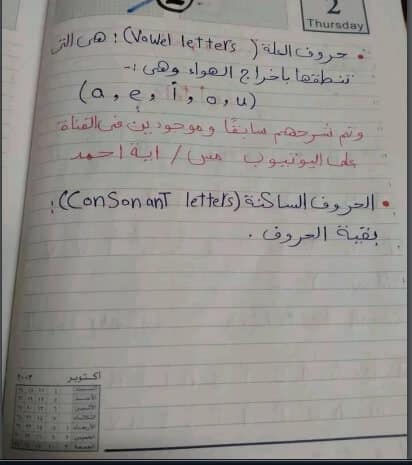 2
Thursday
حروف العلة (Vowel letters): هى التى
ننطقها باخراج الهواء وهى :-
(a, e, i, o, u)
وتم شرحهم سابقًا وموجودين فى القناة
على اليوتيوب مس/ اية احمد
الحروف الساكنة (Consonant letters):
بقية الحروف.
أكتوبر